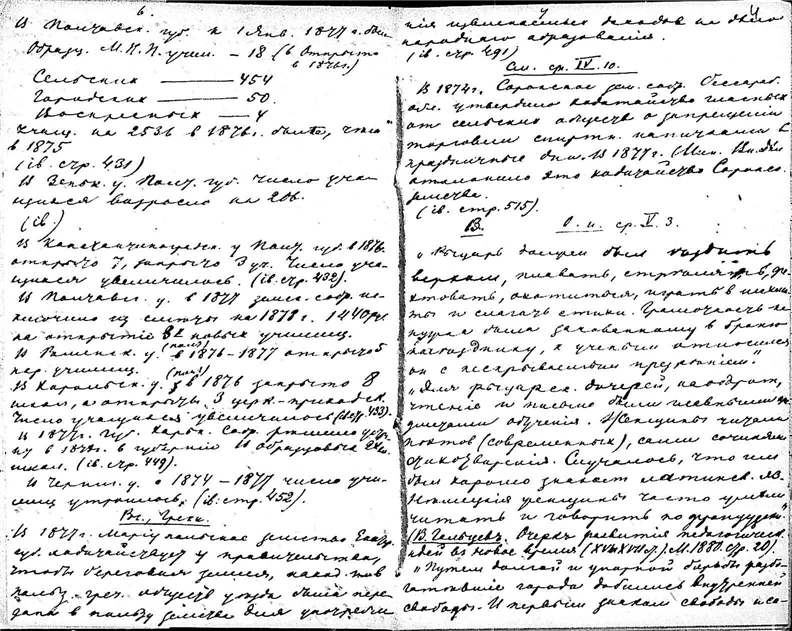 6.
В Полтавск. губ. к 1 Янв. 1877 г. было
Образц. М.Н.П. учил. – 18 (6 открыто
в 1876 г.)
Сельских — 454
Городских — 50.
Воскресных — 4
учащ. на 2536 в 1876 г. более, чем
в 1875
(ib. стр. 431)
В Зеньк. у. Полт. губ. число уча-
щихся возросло на 206.
(ib.)
В Константиноградск. у. Полт. губ. в 1876
открыто 7, закрыто 3 уч. Число уча-
щихся увеличилось. (ib. стр. 432).
В Полтавск. у. в 1877 земск. собр.
из сметы на 1878 г. 1440 р.
на открытие новых училищ.
В Роменск. у. (полт.) в 1876–1877 открыто 6
нар. училищ.
В Хорольск. у. (полт.) в 1876 закрыто 8
школ, а открыто 3 церк.-приходск.
Число учащихся увеличилось (стр. 433).
В 1877 г. губ. Харьк. собр. решило
в 1878 г. в губернии образцовых
школ. (ib. стр. 449).
В Черниг. у. с 1874–1877 число учи-
лищ утроилось. (ib. стр. 452).
Вг., Греки.
В 1877 г. Мариупольское земство Екатер.
губ. ходатайствует у правительства,
чтобы береговая земля,
польз. греч. обществ уезда была пере-
дана в пользу земства для
извлекаемых доходов на дело
народного образования.
(ib. стр. 491)
См. ср. IV. 10.
В 1874 г. Сорокское зем. собр. Бессараб.
обл. утвердило ходатайство гласных
от сельских обществ о запрещении
торговли спиртн. напитками в
праздничные дни. В 1877 г. (Мин. Вн. Дел
отклонило это ходатайство Сорокс.
земства.
(ib. стр. 515).
В. О. и. ср. V. 3.
„Рыцарь должен был ездить
верхом, плавать, стрелять, фе-
хтовать, охотиться, играть в шахма-
ты и слагать стихи. Грамотность не
нужна была закованному в броню
наезднику, к ученым относился
он с нескрываемым презрением."
„Для рыцарск. дочерей, наоборот,
чтение и письмо были главными пре-
дметами обучения. Женщины читали
поэтов (современных), сами сочиняли
стихотворения. Случалось, что им
был хорошо знаком латинск. яз.
Немецкия женщины часто умели
читать и говорить по французски"
(В. Гольцев. Очерк развития педагогическ.
идей в новое время (XVI и XVII в.). М. 1880. стр. 20).
„Путем долгой и упорной борьбы разбо-
гатевшие города добились внутренней
свободы. И первым знаком свободы и со-